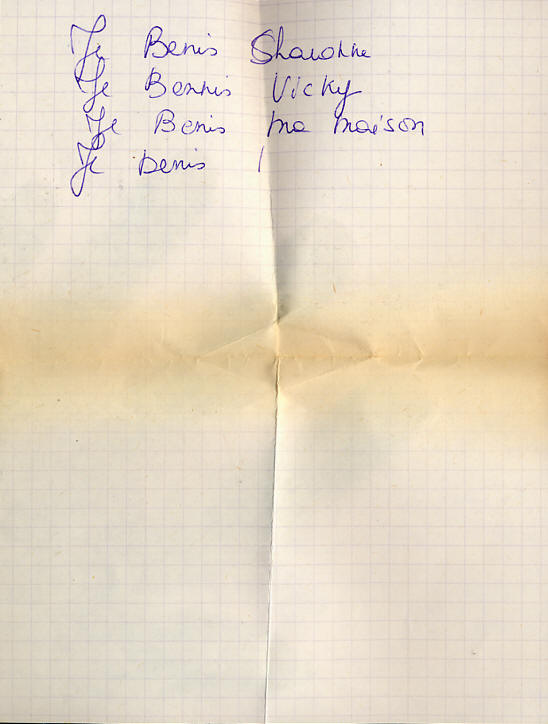 Je Benis Sharonne
Je Bennis Vicky
Je Benis ma maison
Je Benis